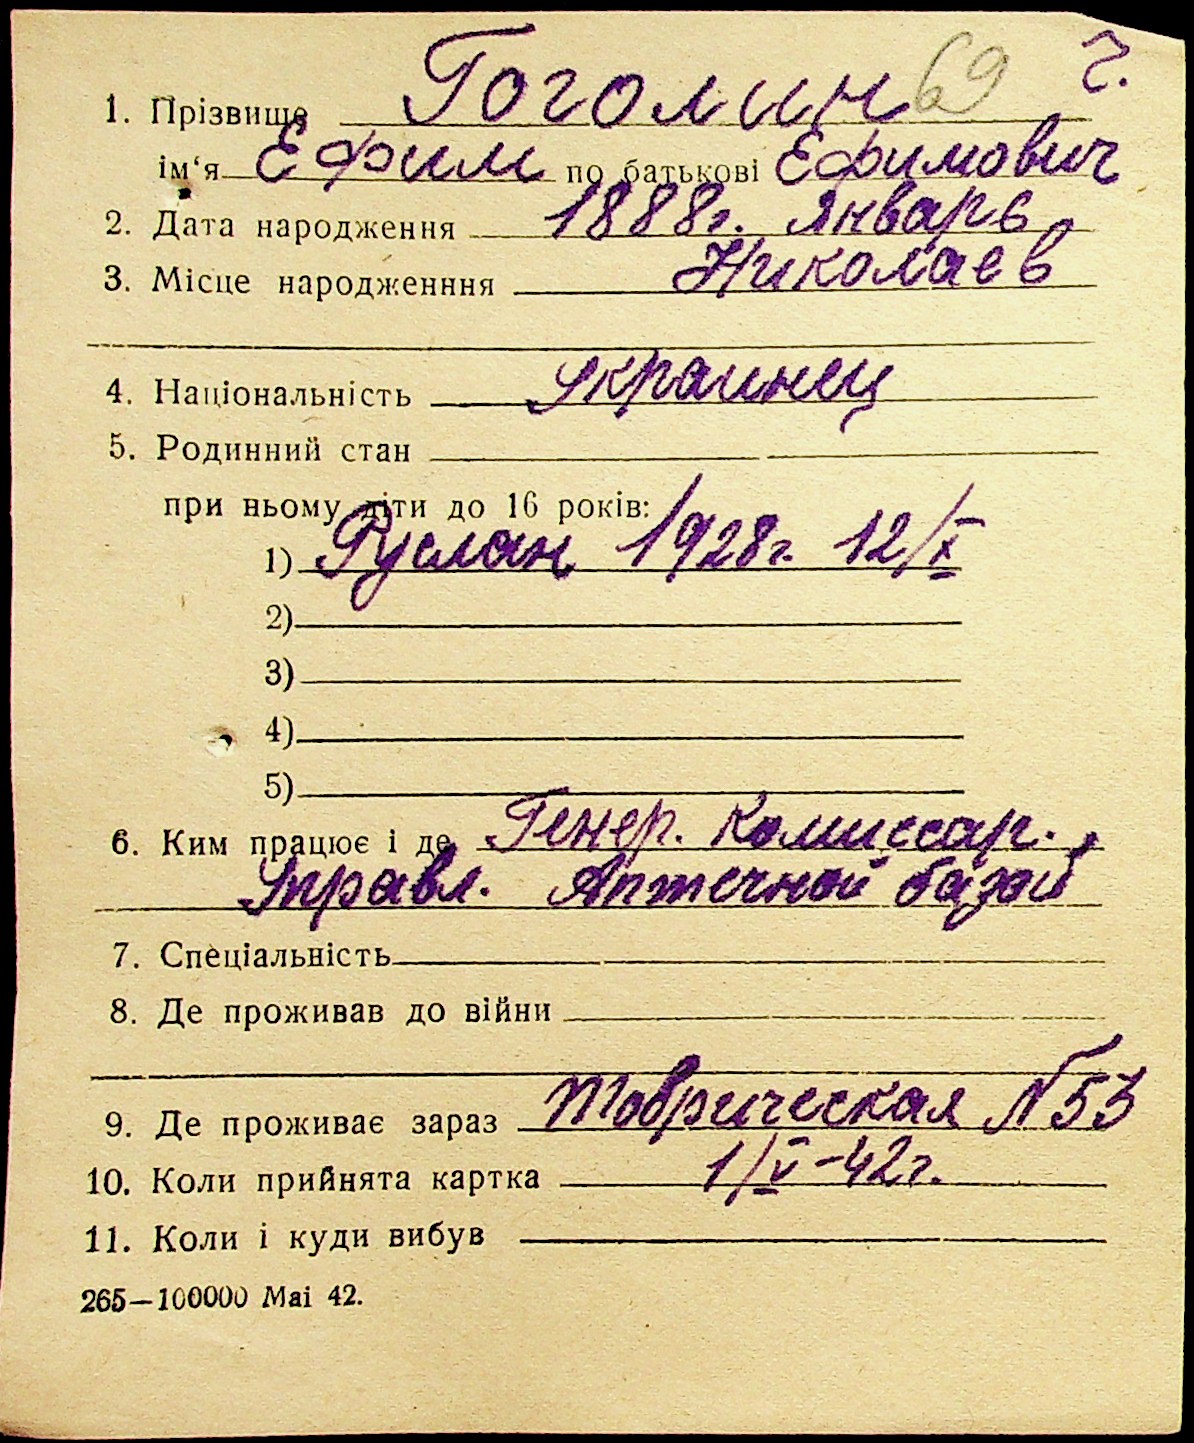 г.
1. Прізвище Гоголин 69
ім‘я Ефим по батькові Ефимович
2. Дата народження 1888г. январь
3. Місце народженння Николаев
4. Національність украинец
5. Родинний стан
при ньому діти до 16 років:
1) Руслан 1928г. 12/X
2)
3)
4)
5)
6. Ким працює і де Генер. Комиссар.,
Управл. Аптечной базой
7. Спеціальність
8. Де проживав до війни
9. Де проживає зараз Товрическая N 53
10. Коли прийнята картка 1/V-42г.
11. Коли і куди вибув
265—100000 Маі 42.